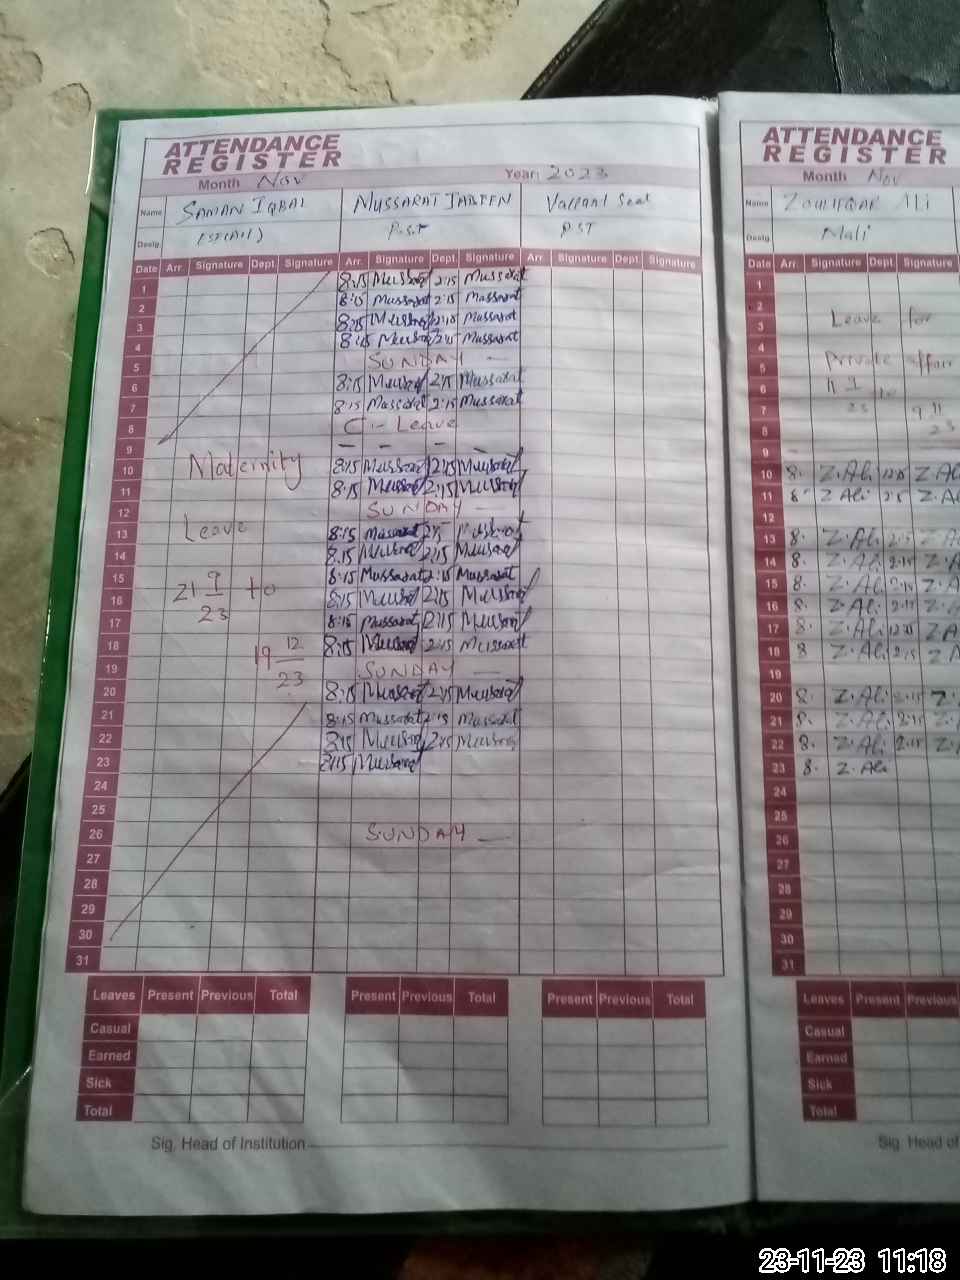 ATTENDANCE
REGISTER
Month Nov Year 2023
Name SAMAN IQBAL MUSSARAT JABEEN Vaccant Seat
Desig. P.S.T PST
Date Arr. Signature Dept. Signature Arr. Signature Dept. Signature Arr. Signature Dept. Signature
1 8:15 Mussarat 2:15 Mussarat
2 8:15 Mussarat 2:15 Mussarat
3 8:15 Mussarat 2:15 Mussarat
4 8:15 Mussarat 2:15 Mussarat
5 SUNDAY —
6 8:15 Mussarat 2:15 Mussarat
7 8:15 Mussarat 2:15 Mussarat
8 C - Leave
9 — — — —
10 Maternity 8:15 Mussarat 2:15 Mussarat
11 8:15 Mussarat 2:15 Mussarat
12 SUNDAY —
13 Leave 8:15 Mussarat 2:15 Mussarat
14 8:15 Mussarat 2:15 Mussarat
15 8:15 Mussarat 2:15 Mussarat
16 21 9/23 to 8:15 Mussarat 2:15 Mussarat
17 8:15 Mussarat 2:15 Mussarat
18 8:15 Mussarat 2:15 Mussarat
19 19 12/23 SUNDAY —
20 8:15 Mussarat 2:15 Mussarat
21 8:15 Mussarat 2:15 Mussarat
22 8:15 Mussarat 2:15 Mussarat
23 8:15 Mussarat
24
25
26 SUNDAY —
27
28
29
30
31
Leaves Present Previous Total Present Previous Total Present Previous Total
Casual
Earned
Sick
Total
Sig. Head of Institution
ATTENDANCE
REGISTER
Month Nov
Name ZOULFIQAR ALI
Desig. Mali
Date Arr. Signature Dept. Signature
1
2
3 Leave for
4
5 Private affair
6
7
8
9
10 8. Z.Ali Z.Ali
11 8. Z.Ali Z.A
12
13 8. Z.Ali 2:15 Z.A
14 8. Z.Ali 2:15 Z.A
15 8. Z.Ali 2:15 Z.A
16 8. Z.Ali 2:15 Z.A
17 8. Z.Ali Z.A
18 8 Z.Ali 2:15 Z.A
19
20 8. Z.Ali 2:15 Z.
21 8. Z.Ali 2:15 Z.
22 8. Z.Ali 2:15 Z.
23 8. Z.Ali
24
25
26
27
28
29
30
31
Leaves Present Previous
Casual
Earned
Sick
Total
Sig. Head of
23-11-23 11:18